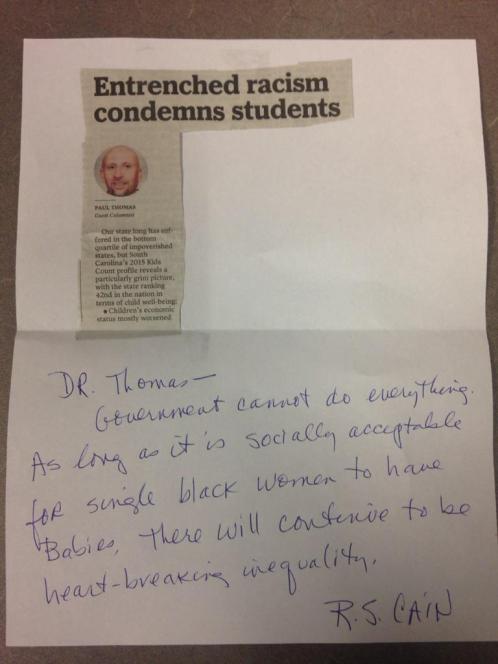 Entrenched racism
condemns students
PAUL THOMAS
Guest Columnist
Our state long has suf-
fered in the bottom
quartile of impoverished
states, but South
Carolina's 2015 Kids
Count profile reveals a
particularly grim picture,
with the state ranking
42nd in the nation in
terms of child well-being:
● Children's economic
status mostly worsened
DR. Thomas—
Government cannot do everything.
As long as it is socially acceptable
for single black women to have
Babies, there will continue to be
heart-breaking inequality.
R.S. CAIN